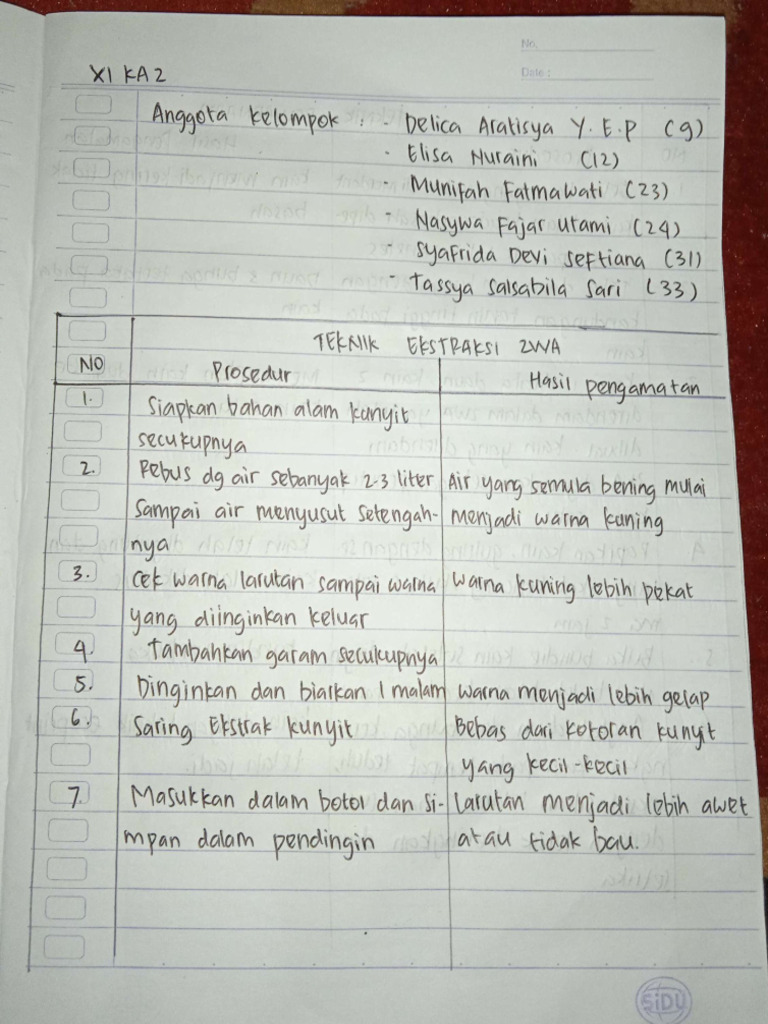 No.
Date :
XI KA2
Anggota Kelompok : - Delica Aratisya Y. E.P (9)
- Elisa Nuraini (12)
- Munifah Fatmawati (23)
- Nasywa Fajar Utami (24)
- Syafrida Devi Seftiana (31)
- Tassya Salsabila Sari (33)
TEKNIK EKSTRAKSI ZWA
NO Prosedur Hasil pengamatan
1. Siapkan bahan alam kunyit
secukupnya
2. Rebus dg air sebanyak 2-3 liter Air yang semula bening mulai
Sampai air menyusut setengah- menjadi warna kuning
nya
3. Cek warna larutan sampai warna Warna kuning lebih pekat
yang diinginkan keluar
4. Tambahkan garam secukupnya
5. Dinginkan dan biarkan 1 malam warna menjadi lebih gelap
6. Saring Ekstrak kunyit Bebas dari kotoran kunyit
yang kecil-kecil
7. Masukkan dalam botol dan si- larutan menjadi lebih awet
mpan dalam pendingin atau tidak bau.
SiDU